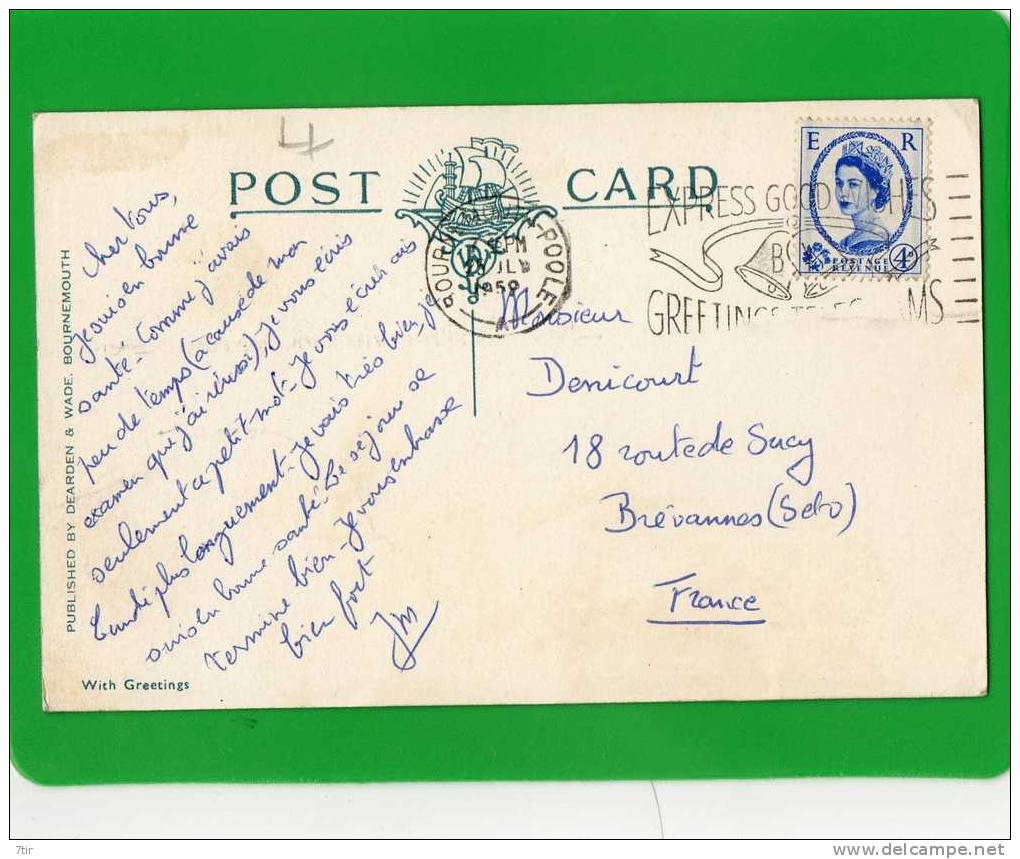 4
POST CARD
E R
POSTAGE
REVENUE
4D
EXPRESS GOOD
GREETINGS
BOURNEMOUTH-POOLE
PM
JLY
1959
A
PUBLISHED BY DEARDEN & WADE. BOURNEMOUTH
Cher tous,
Je suis en bonne
santé. Comme j'avais
peu de temps (à cause de mon
examen que j'ai réussi), je vous écris
seulement ce petit mot. Je vous écrirais
lundi plus longuement. Je vais très bien, je
suis en bonne santé. Le séjour se
termine bien. Je vous embrasse
bien fort
JM
Monsieur
Denicourt
18 route de Sucy
Brévannes (SetO)
France
With Greetings
7tir
delcampe.net